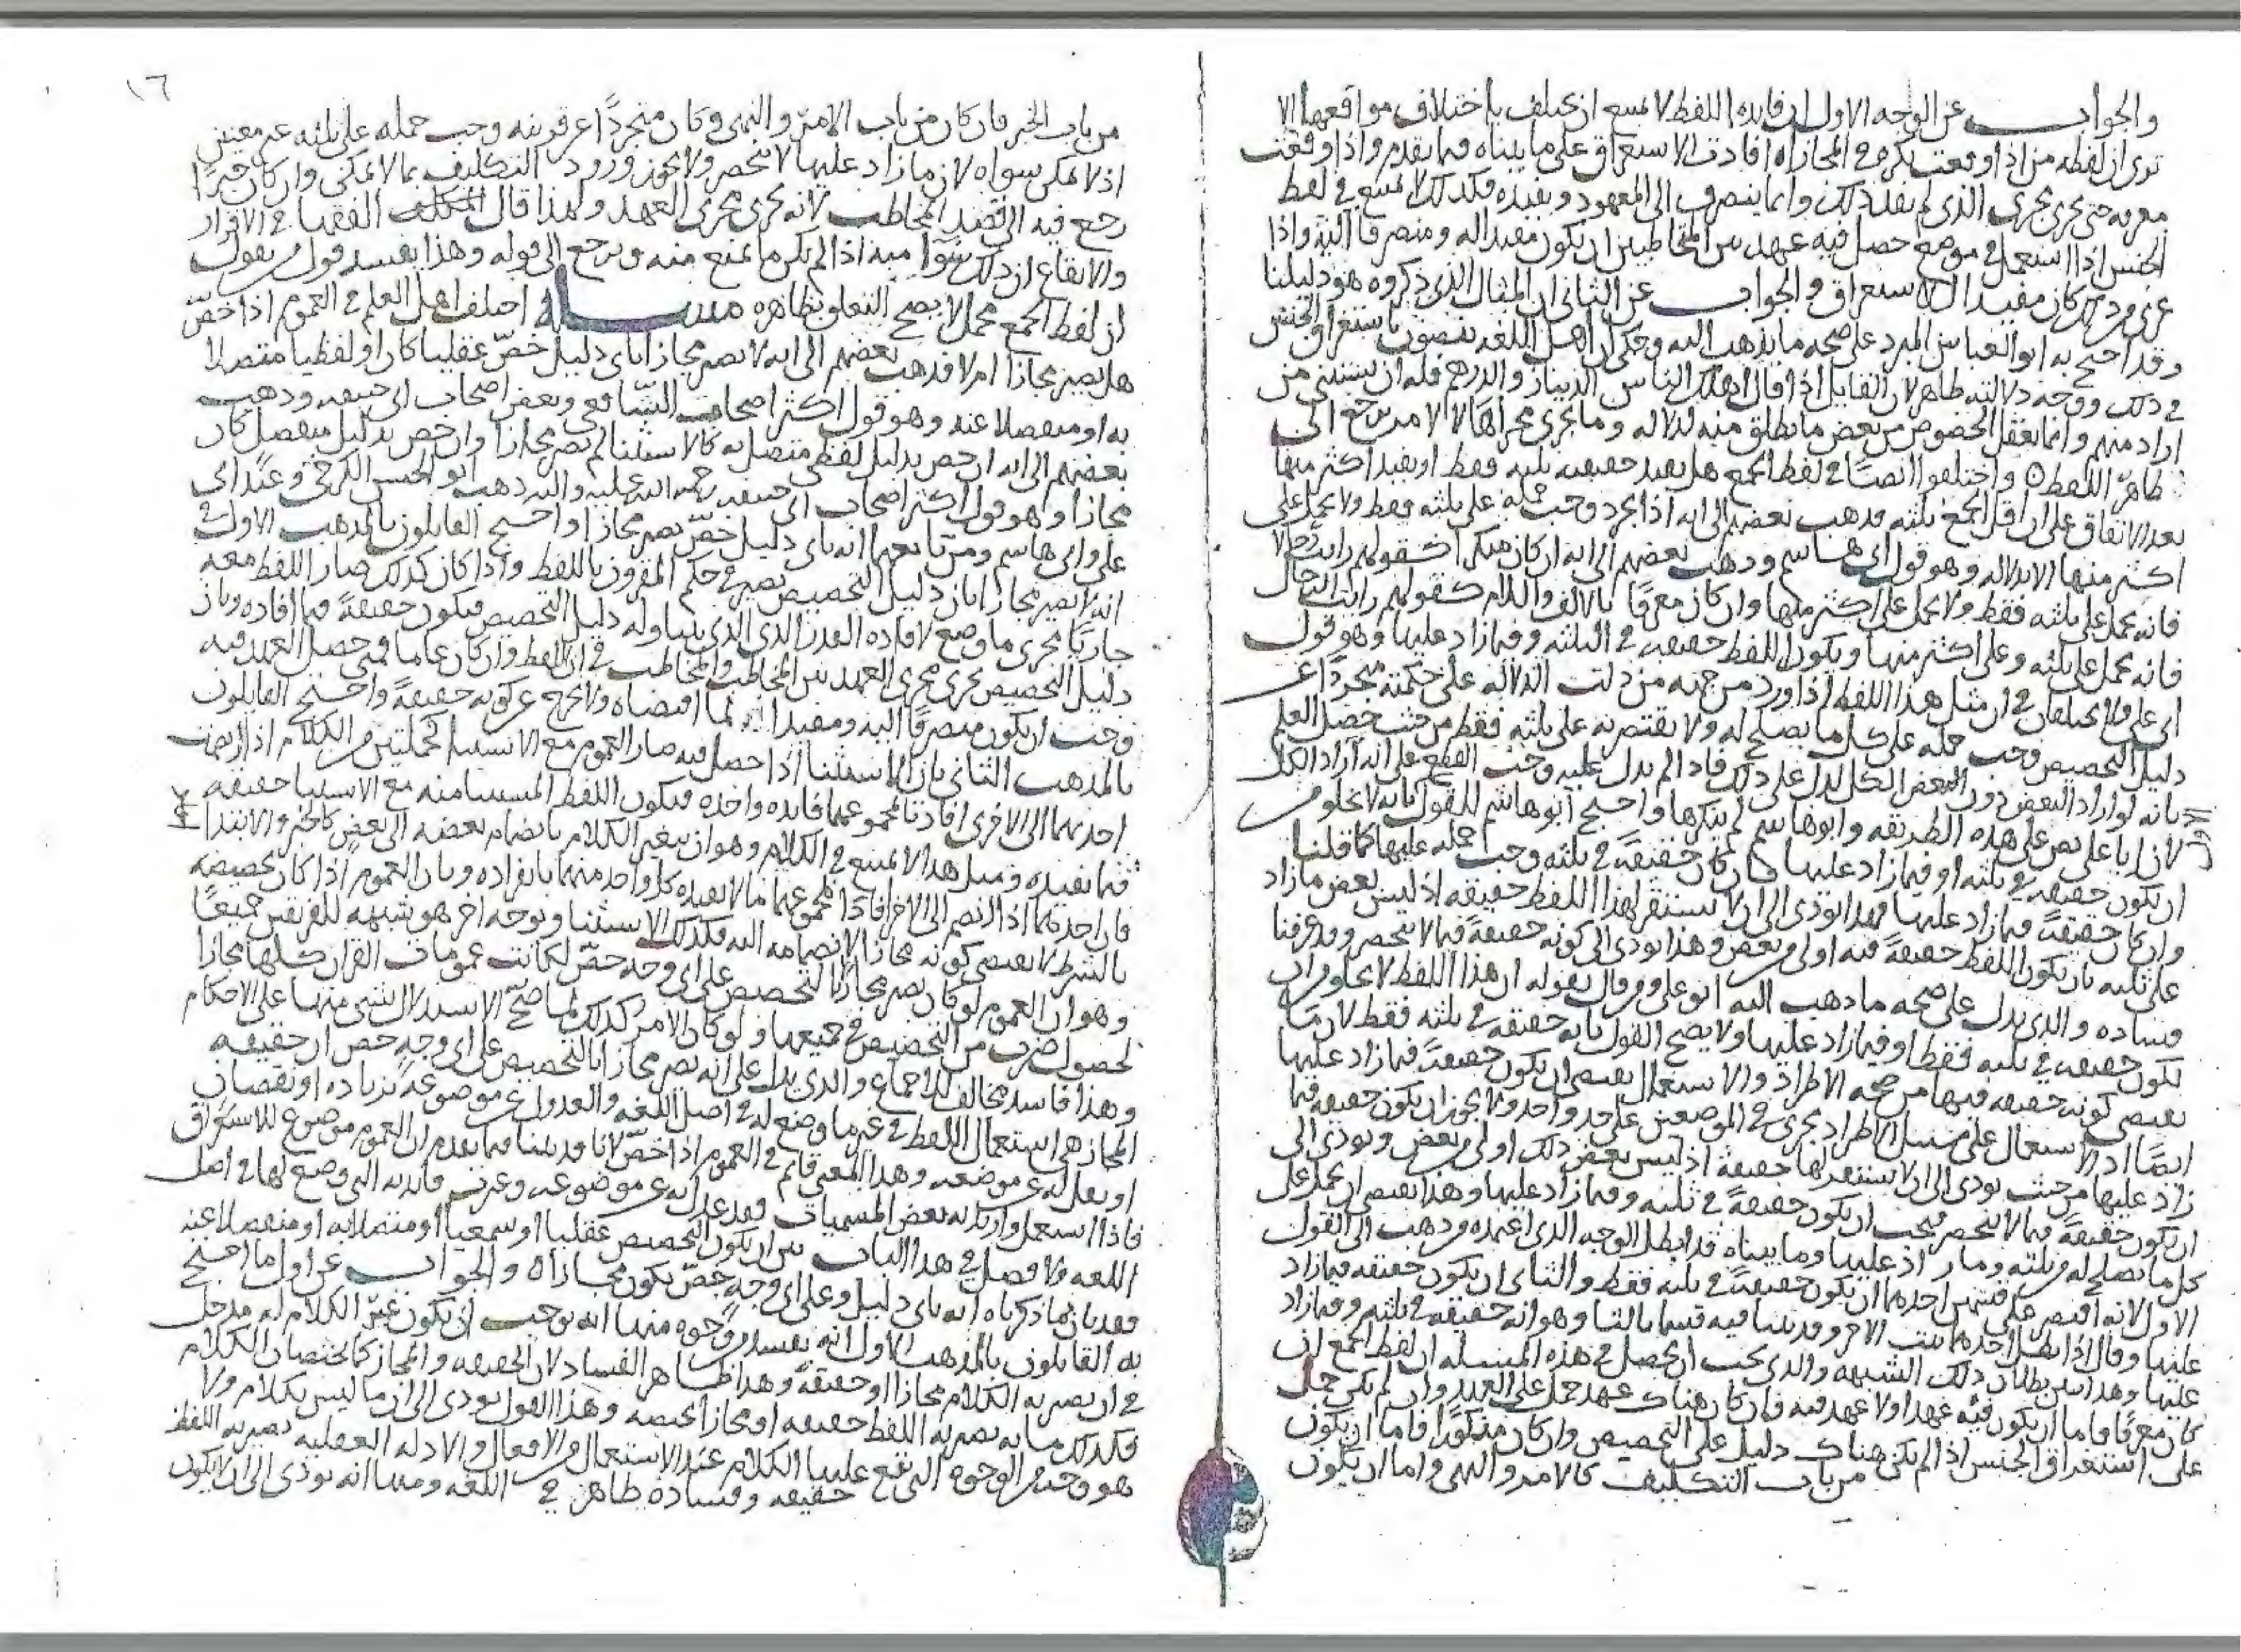 والجواب عن الوجه الاول ان فايدة اللفظ لا يمتنع ان تختلف باختلاف مواقعها الا
ترى ان لفظه من اذا وقعت نكرة في المجازاه افادت الاستغراق على ما بيناه فيما تقدم واذا وقعت
معرفه حتى تجرى مجرى الذى لم تفد ذلك وانما ينصرف الى المعهود وتفيده فكذلك لا يمتنع في لفظ
الجنس اذا استعمل في موضع حصل فيه عهد بين المتخاطبين ان يكون مفيدا له ومنصرفا اليه واذا
عرى من ذلك كان مفيدا للاستغراق والجواب عن الثانى ان المثال الذى ذكروه هو دليلنا
وقد احتج به ابو العباس المبرد على صحه ما يذهب اليه وحكى ان اهل اللغه ينصون باستغراق الجنس
في ذلك ووجه دلالته ظاهر لان القايل اذا قال اهلك الناس الدينار والدرهم فله ان يستثنى من
اراد منهم وانما يعقل الخصوص من بعض ما يطلق منه لدلاله وما يجرى مجراها لا لامر يرجع الى
ظاهر اللفظ واختلفوا ايضا في لفظ الجمع هل يفيد حقيقه ثلثه فقط او يفيد اكثر منها
بعد الاتفاق على ان اقل الجمع ثلثه فذهب بعضهم الى انه اذا تجرد وجب حمله على ثلثه فقط ولا يحمل على
اكثر منها الا بدلاله وهو قول ابى هاشم وذهب بعضهم الى انه ان كان منكرا كقولهم رايت رجالا
فانه يحمل على ثلثه فقط ولا يحمل على اكثر منها وان كان معرفا بالالف واللام كقولهم رايت الرجال
فانه يحمل على ثلثه وعلى اكثر منها ويكون اللفظ حقيقه في الثلثه وفيما زاد عليها وهو قول
ابى على ولا يختلفان في ان مثل هذا اللفظ اذا ورد من جهه من دلت الدلاله على حكمته متجردا عن
دليل التخصيص وجب حمله على كل ما يصلح له ولا يقتصر به على ثلثه فقط من حيث حصل العلم
بانه لو اراد البعض دون البعض الكل لدل على ذلك فاذا لم يدل عليه وجب القطع على انه اراد الكل
لان ابا على نص على هذه الطريقه وابو هاشم لم ينكرها واحتج ابو هاشم للقول الاول بانه لا يخلو من
ان يكون حقيقه في ثلثه او فيما زاد عليها فان كان حقيقة في ثلثه وجب حمله عليها كما قلنا
وان كان حقيقة فيما زاد عليها فهذا يؤدى الى ان لا تستقر لهذا اللفظ حقيقه اذ ليس بعض ما زاد
على ثلثه بان يكون اللفظ حقيقة فيه اولى من بعض وهذا يؤدى الى كونه حقيقة فيما لا ينحصر وقد عرفنا
فساده والذى يدل على صحه ما ذهب اليه ابو على ومن قال بقوله ان هذا اللفظ لا يخلو من ان
يكون حقيقه في ثلثه فقط او فيما زاد عليها ولا يصح القول بانه حقيقه في ثلثه فقط لان ما
يقتضى كونه حقيقه فيها من صحه الاطراد والاستعمال يقتضى ان يكون حقيقة فيما زاد عليها
ايضا اذ الاستعمال على سبيل الاطراد يجرى في الموضعين على حد واحد ولا يجوز ان يكون حقيقه فيما
زاد عليها من حيث يؤدى الى ان لا تستقر لها حقيقة اذ ليس بعض ذلك اولى من بعض ويؤدى الى
ان يكون حقيقة فيما لا ينحصر فيجب ان يكون حقيقة في ثلثه وفيما زاد عليها وهذا يقتضى ان يحمل على
كل ما يصلح له من ثلثه وما زاد عليها وما بيناه قد ابطل الوجه الذى اعتمده من ذهب الى القول
الاول لانه اقتصر على قسمين احدهما ان يكون حقيقة في ثلثه فقط والثانى ان يكون حقيقه فيما زاد
عليها وقال اذا بطل احدهما ثبت الاخر وقد بينا فيه قسما ثالثا وهو انه حقيقه في ثلثه وفيما زاد
عليها وهذا يبين بطلان ذلك الشبهه والذى يجب ان يحصل في هذه المسئله ان لفظ الجمع ان
كان معرفا فاما ان يكون فيه عهد او لا عهد فيه فان كان هناك عهد حمل على العهد وان لم يكن حمل
على استغراق الجنس اذا لم يكن هناك دليل على التخصيص وان كان منكورا فاما ان يكون
من باب التكليف كالامر والنهى واما ان يكون
١٦
من باب الخبر فان كان من باب الامر والنهى وكان متجردا عن قرينه وجب حمله على ثلثه غير معينين
اذ لا يمكن سواه لان ما زاد عليها لا ينحصر ولا يجوز ورود التكليف بما لا يمكن وان كان خبرا
رجع فيه الى قصد المخاطب لانه يجرى مجرى العهد ولهذا قال الفقها في الاقرار
والايقاع ان ذلك مبه اذا لم يكن ما يمنع منه ويرجع الى قوله وهذا يفسد قول من يقول
ان لفظ الجمع مجمل لا يصح التعلق بظاهره مسألة اختلف اهل العلم في العموم اذا خص
هل يصير مجازا ام لا فذهب بعضهم الى انه لا يصير مجازا باى دليل خص عقليا كان او لفظيا متصلا
به او منفصلا عنه وهو قول اكثر اصحاب الشافعى وبعض اصحاب ابى حنيفه وذهب
بعضهم الى انه ان خص بدليل لفظى متصل به كالاستثنا لم يصر مجازا وان خص بدليل منفصل كان
مجازا وهو قول اكثر اصحاب ابى حنيفه رحمه الله عليه واليه ذهب ابو الحسن الكرخى وعند ابى
على وابى هاشم ومن تابعهما انه باى دليل خص يصير مجازا واحتج القايلون بالمذهب الاول في
انه لا يصير مجازا بان دليل التخصيص يصير في حكم المقرون باللفظ واذا كان كذلك صار اللفظ معه
جاريا مجرى ما وضع لافاده القدر الذى يتناوله دليل التخصيص فيكون حقيقة فيما افاده وبان
دليل التخصيص يجرى مجرى العهد بين المخاطب والمخاطب في ان اللفظ وان كان عاما فمتى حصل العهد فيه
وجب ان يكون منصرفا اليه ومفيدا لما اقتضاه ولا يخرج عن كونه حقيقة واحتج القايلون
بالمذهب الثانى بان الاستثنا اذا حصل فيه صار العموم مع الاستثنا كجملتين من الكلام اذا انضمت
احدهما الى الاخرى افادتا بمجموعهما فايده واحده فيكون اللفظ المستثنا منه مع الاستثنا حقيقه
فيما يفيده ومثل هذا لا يمتنع في الكلام وهو ان يتغير الكلام بانضمام بعضه الى بعض كالخبر والابتدا
فان احدهما اذا انضم الى الاخر افادا بمجموعهما ما لا يفيده كل واحد منهما بانفراده وبان العموم اذا كان تخصيصه
بالشرط لا يقتضى كونه مجازا لانضمامه اليه فكذلك الاستثنا وبوجه اخر هو شبهه للفريقين جميعا
وهو ان العموم لو كان يصير مجازا بالتخصيص على اى وجه خص لكانت عمومات القران كلها مجازا
لحصول ضرب من التخصيص في جميعها ولو كان الامر كذلك لما صح الاستدلال بشى منها على الاحكام
وهذا فاسد مخالف للاجماع والذى يدل على انه يصير مجازا بالتخصيص على اى وجه خص ان حقيقه
المجاز هى استعمال اللفظ في غير ما وضع له في اصل اللغه والعدول عن موضوعه بزياده او نقصان
او نقل له عن موضعه وهذا المعنى قايم في العموم اذا خص لانا قد بينا فيما تقدم ان العموم موضوع للاستغراق
فاذا استعمل واريد به بعض المسميات فقد عدل به عن موضوعه وعن فايدته التى وضع لها في اصل
اللغه ولا فصل في هذا الباب بين ان يكون التخصيص عقليا او سمعيا او متصلا به او منفصلا عنه
فقد بان بما ذكرناه انه باى دليل وعلى اى وجه خص يكون مجازا والجواب عن اول ما احتج
به القايلون بالمذهب الاول انه يفسد من وجوه منها انه يوجب ان يكون غير الكلام له مدخل
في ان يصير به الكلام مجازا او حقيقة وهذا ظاهر الفساد لان الحقيقه والمجاز كما يختصان الكلام
فكذلك ما به يصير به اللفظ حقيقه او مجازا يختصه وهذا القول يؤدى الى ان ما ليس بكلام ولا
هو وجه من الوجوه التى تقع عليها الكلام عند الاستعمال من الافعال والادله العقليه يصير به اللفظ
حقيقه وفساده ظاهر في اللغه ومنها انه يؤدى الى ان يكون